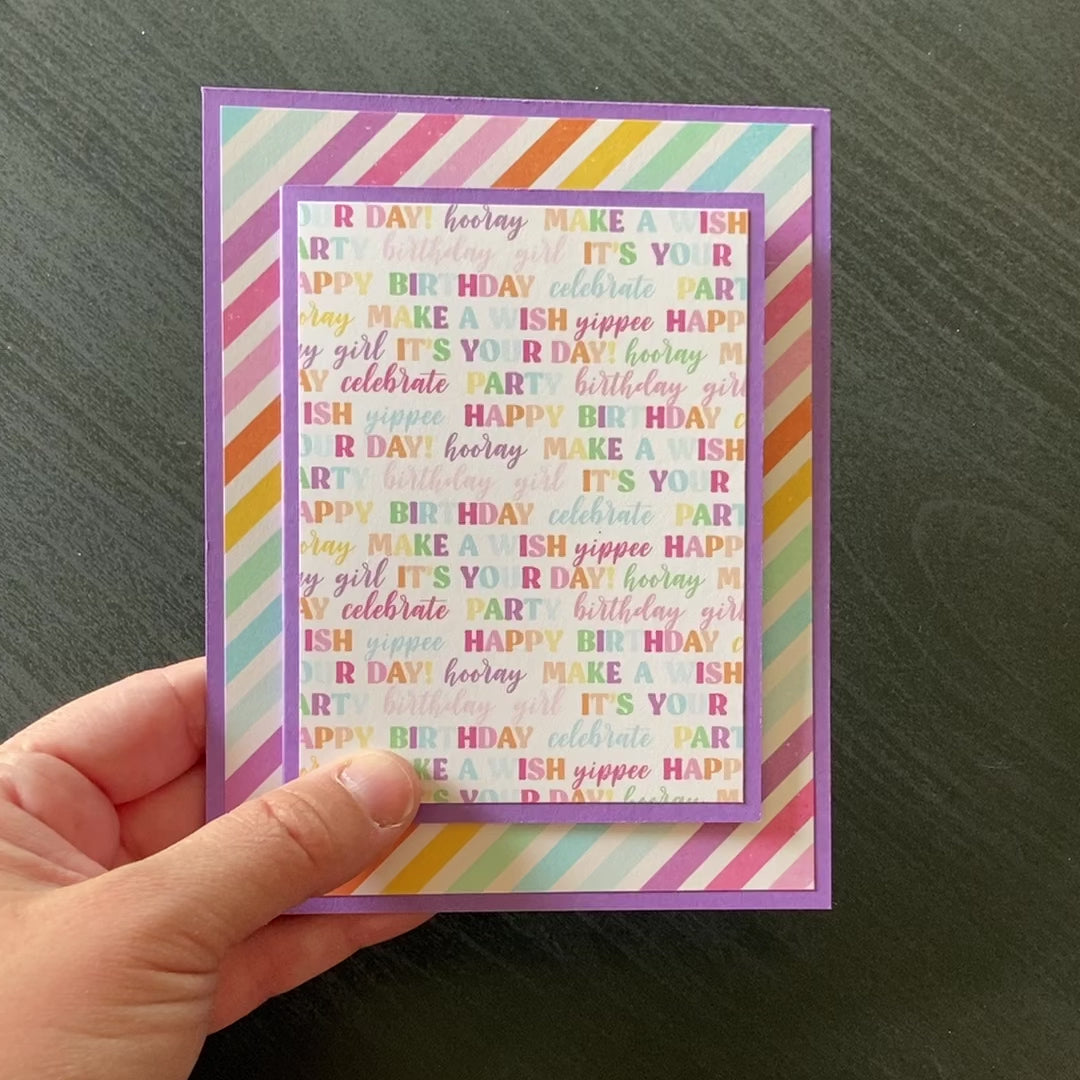 OUR DAY! hooray MAKE A WISH
ARTY birthday girl IT'S YOUR
APPY BIRTHDAY celebrate PART
oray MAKE A WISH yippee HAPP
ay girl IT'S YOUR DAY! hooray M
AY celebrate PARTY birthday girl
ISH yippee HAPPY BIRTHDAY c
OUR DAY! hooray MAKE A WISH
ARTY birthday girl IT'S YOUR
APPY BIRTHDAY celebrate PART
oray MAKE A WISH yippee HAPP
ay girl IT'S YOUR DAY! hooray M
AY celebrate PARTY birthday girl
ISH yippee HAPPY BIRTHDAY c
OUR DAY! hooray MAKE A WISH
ARTY birthday girl IT'S YOUR
APPY BIRTHDAY celebrate PART
KE A WISH yippee HAPP
R DAY! hooray M